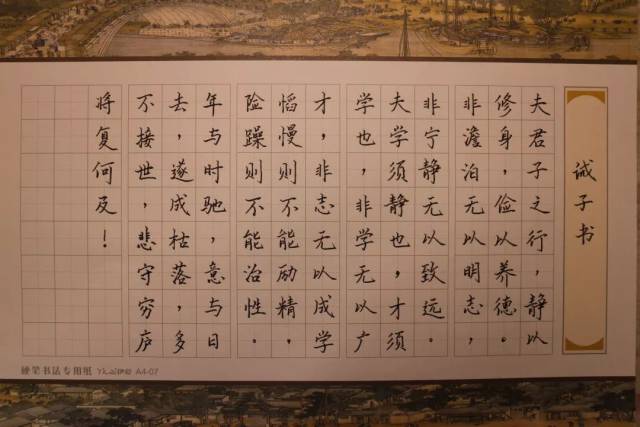 诫子书
夫君子之行，静以
修身，俭以养德。
非澹泊无以明志，
非宁静无以致远。
夫学须静也，才须
学也，非学无以广
才，非志无以成学
慆慢则不能励精，
险躁则不能治性。
年与时驰，意与日
去，遂成枯落，多
不接世，悲守穷庐
将复何及！
硬笔书法专用纸 A4-07